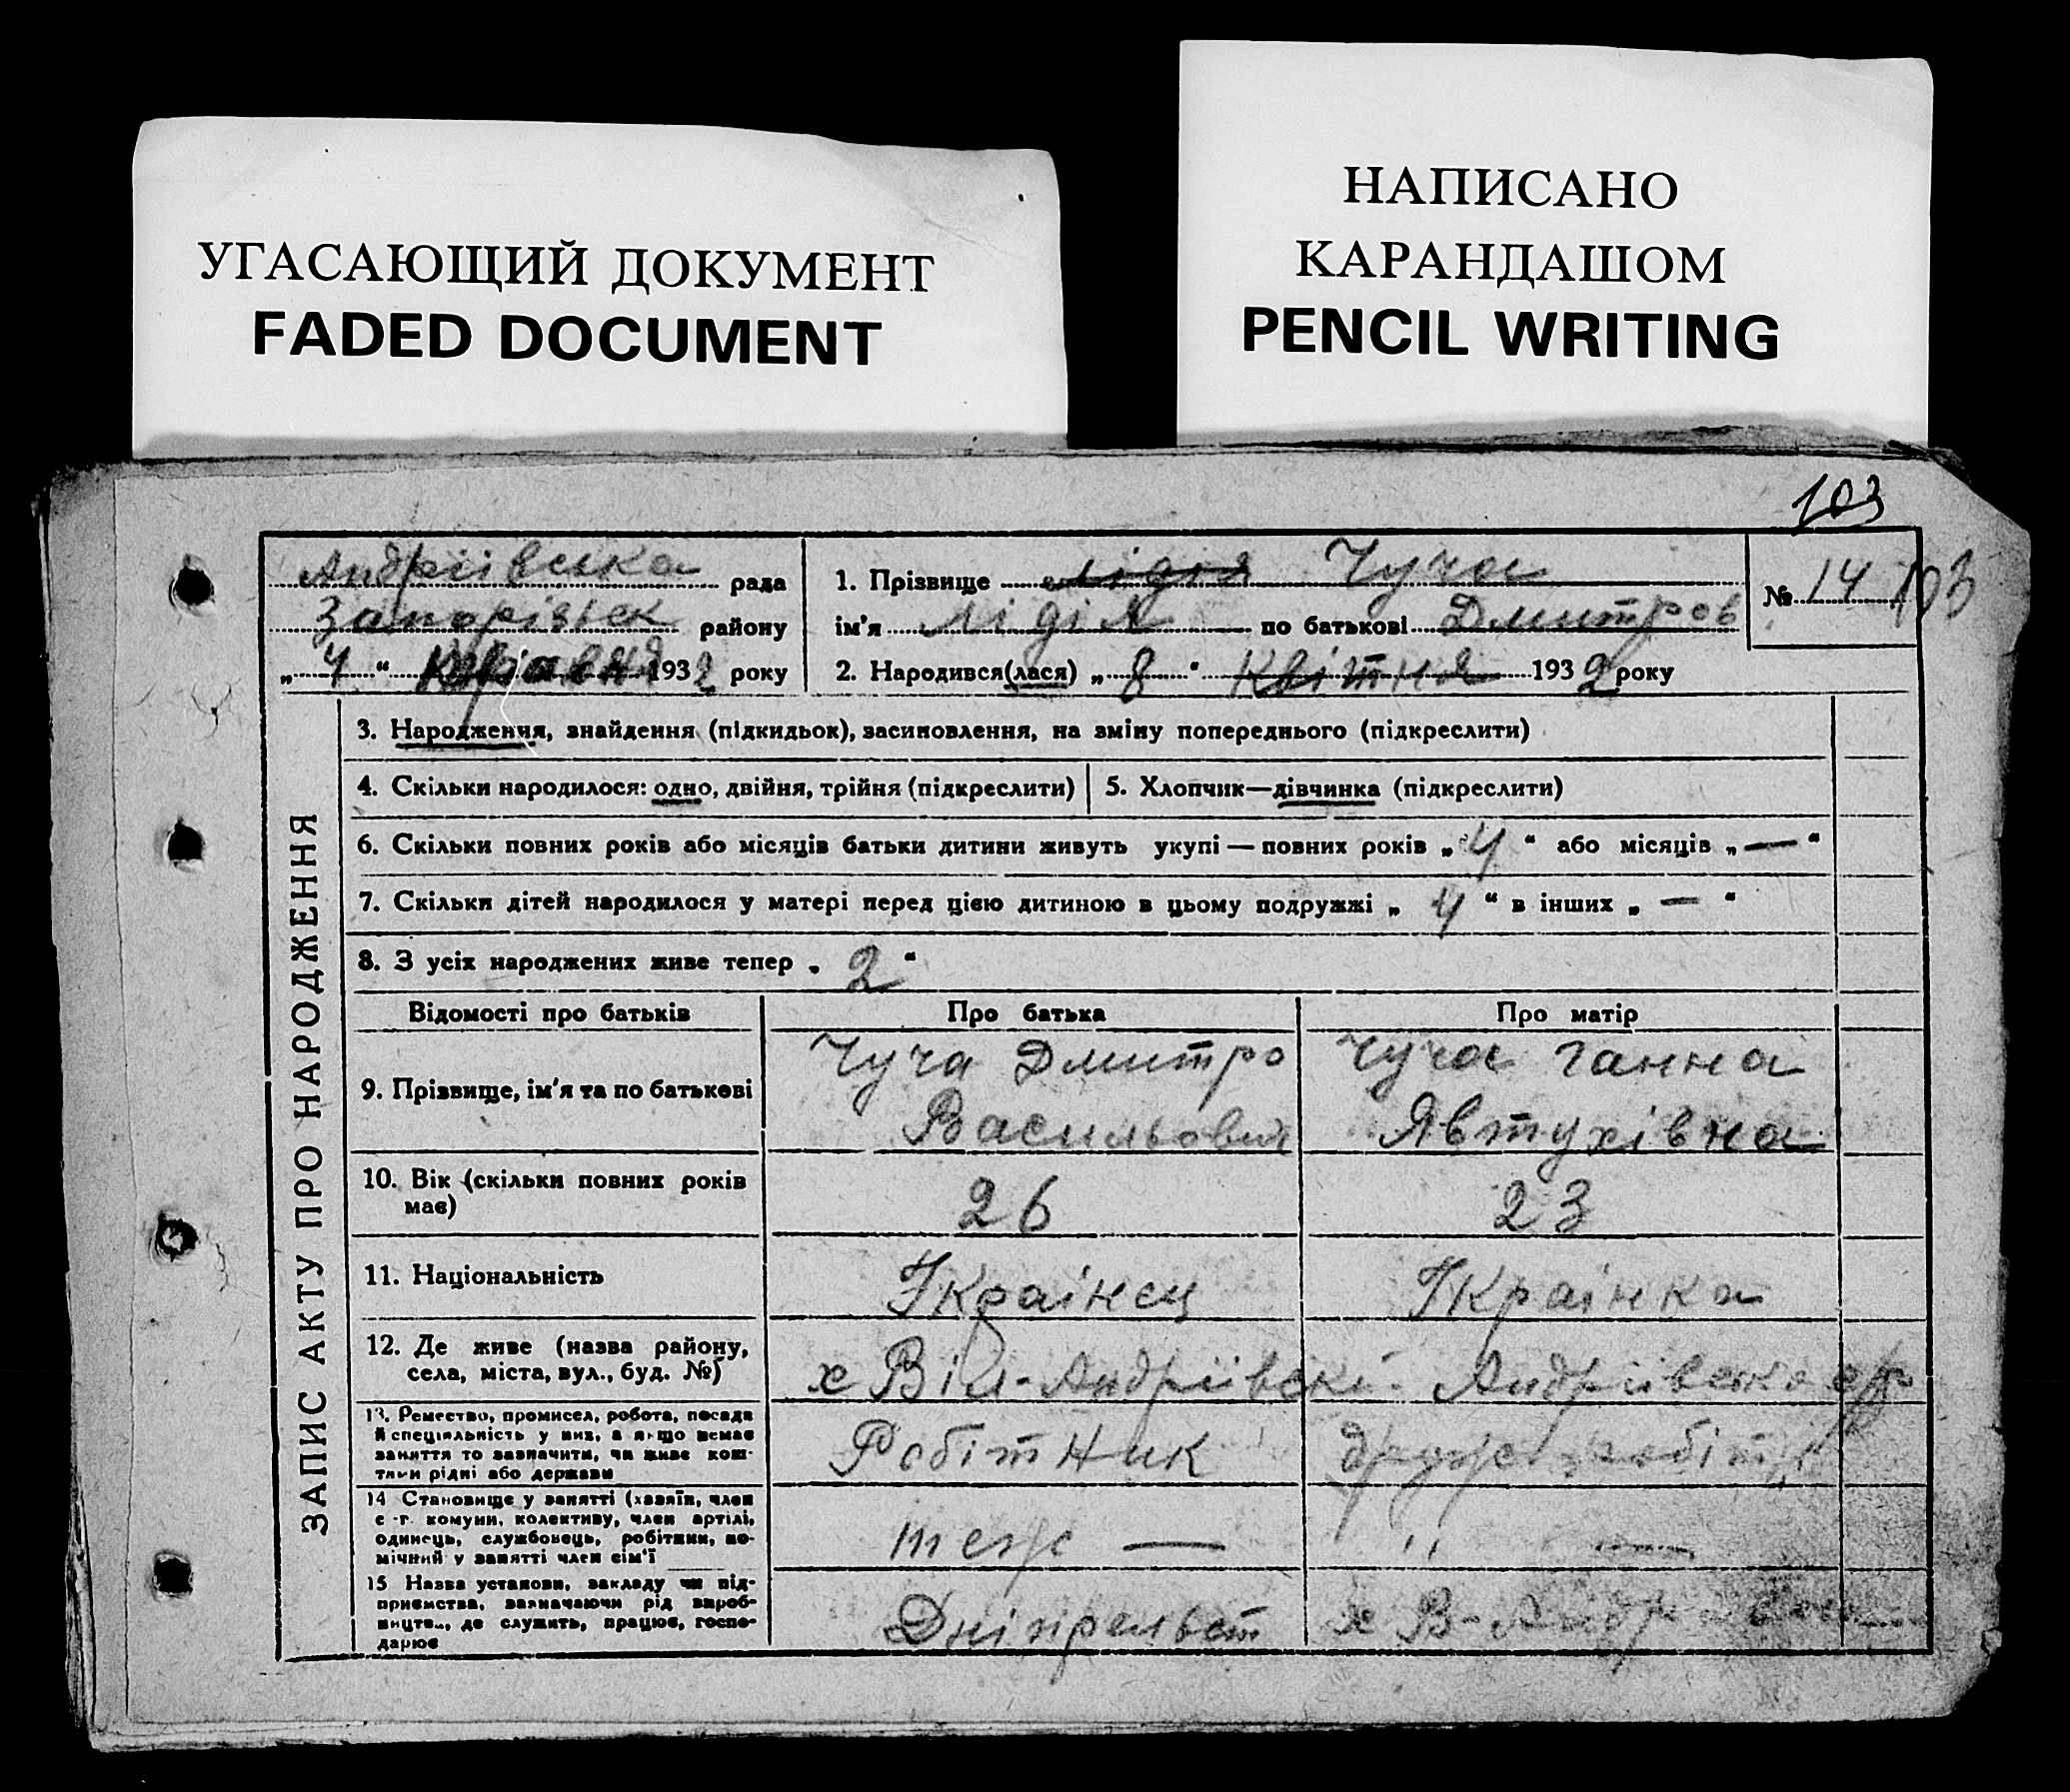 УГАСАЮЩИЙ ДОКУМЕНТ
FADED DOCUMENT
НАПИСАНО
КАРАНДАШОМ
PENCIL WRITING
103
Андріівська рада
Запорізьк району
„ 4 “ 1932 року
1. Прізвище Лідія Чуча
ім'я Лідія по батькові Дмитров
2. Народився(лася) „ 8 “ Квітня 1932 року
№ 14 103
ЗАПИС АКТУ ПРО НАРОДЖЕННЯ
3. Народження, знайдення (підкидьок), засиновлення, на зміну попереднього (підкреслити)
4. Скільки народилося: одно, двійня, трійня (підкреслити)
5. Хлопчик—дівчинка (підкреслити)
6. Скільки повних років або місяців батьки дитини живуть укупі — повних років „ 4 “ або місяців „ — “
7. Скільки дітей народилося у матері перед цією дитиною в цьому подружжі „ 4 “ в інших „ — “
8. З усіх народжених живе тепер „ 2 “
Відомості про батьків Про батька Про матір
9. Прізвище, ім'я та по батькові
Чуча Дмитро
Васильович
Чуча Ганна
Явтухівна
10. Вік (скільки повних років
має)
26 23
11. Національність Українец Українка
12. Де живе (назва району,
села, міста, вул., буд. №)
х Віл-Андріівскі Андріівсько
13. Ремество, промисел, робота, посада
й спеціяльність у них, а якщо немає
заняття то зазначити, чи живе кош-
тами рідні або держави
Робітник
14 Становище у занятті (хазяїн, член
с.-г. комуни, колективу, член артілі,
одинець, службовець, робітник, по-
мічний у занятті член сім'ї
теж — " —
15 Назва установи, закладу чи під-
приємства, зазначаючи рід вироб-
ництва, де служить, працює, госпо-
дарює
Дніпрельст х В-